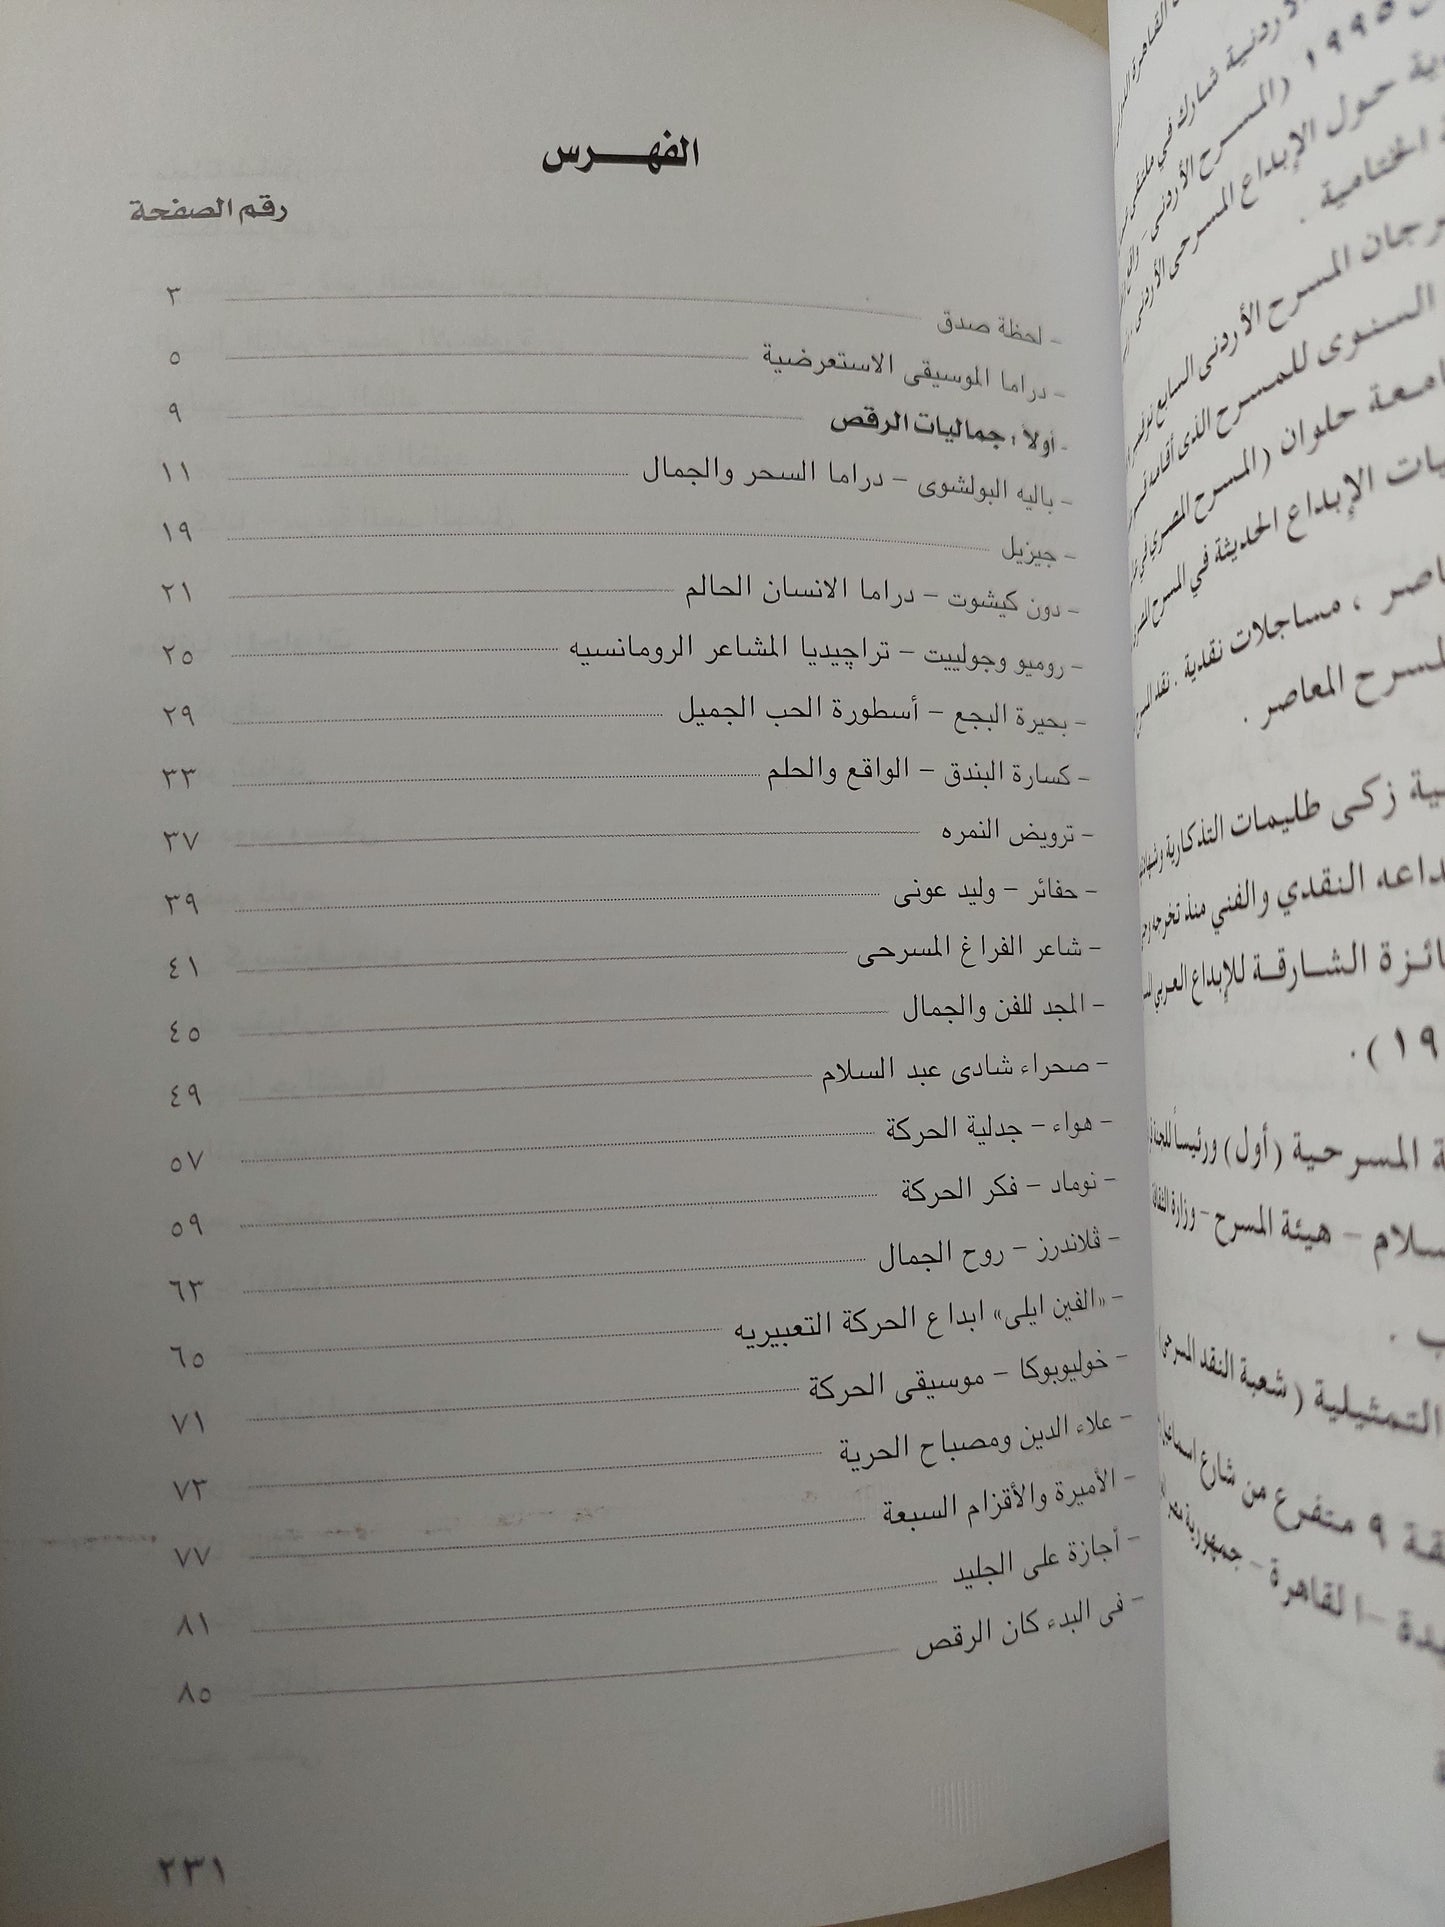 الفهرس
رقم الصفحة
- لحظة صدق ٣
- دراما الموسيقى الاستعرضية ٥
- أولاً : جماليات الرقص ٩
- باليه البولشوى – دراما السحر والجمال ١١
- جيزيل ١٩
- دون كيشوت – دراما الانسان الحالم ٢١
- روميو وجولييت – تراچيديا المشاعر الرومانسيه ٢٥
- بحيرة البجع – أسطورة الحب الجميل ٢٩
- كسارة البندق – الواقع والحلم ٣٣
- ترويض النمره ٣٧
- حفائر – وليد عونى ٣٩
- شاعر الفراغ المسرحى ٤١
- المجد للفن والجمال ٤٥
- صحراء شادى عبد السلام ٤٩
- هواء – جدلية الحركة ٥٧
- نوماد – فكر الحركة ٥٩
- ڤلاندرز – روح الجمال ٦٣
- «الفين ايلى» ابداع الحركة التعبيريه ٦٥
- خوليوبوكا – موسيقى الحركة ٧١
- علاء الدين ومصباح الحرية ٧٣
- الأميرة والأقزام السبعة ٧٧
- أجازة على الجليد ٨١
- فى البدء كان الرقص ٨٥
٢٣١
شارك في ملتقى
١٩٩٥ (المسرح الأردنى -
حول الإبداع المسرحى الأردنى
الختامية .
المسرح الأردنى السابع
السنوى للمسرح الذى أقامه
حلوان (المسرح المصري في
الإبداع الحديثة في المسرح
، مساجلات نقدية . نقد المسرح
المعاصر .
زكى طليمات التذكارية
النقدي والفني منذ تخرجه
الشارقة للإبداع العربي
١٩) .
المسرحية (أول) ورئيساً للجنة
– هيئة المسرح – وزارة الثقافة
التمثيلية (شعبة النقد المسرحى
٩ متفرع من شارع اسماعيل
– القاهرة – جمهورية مصر